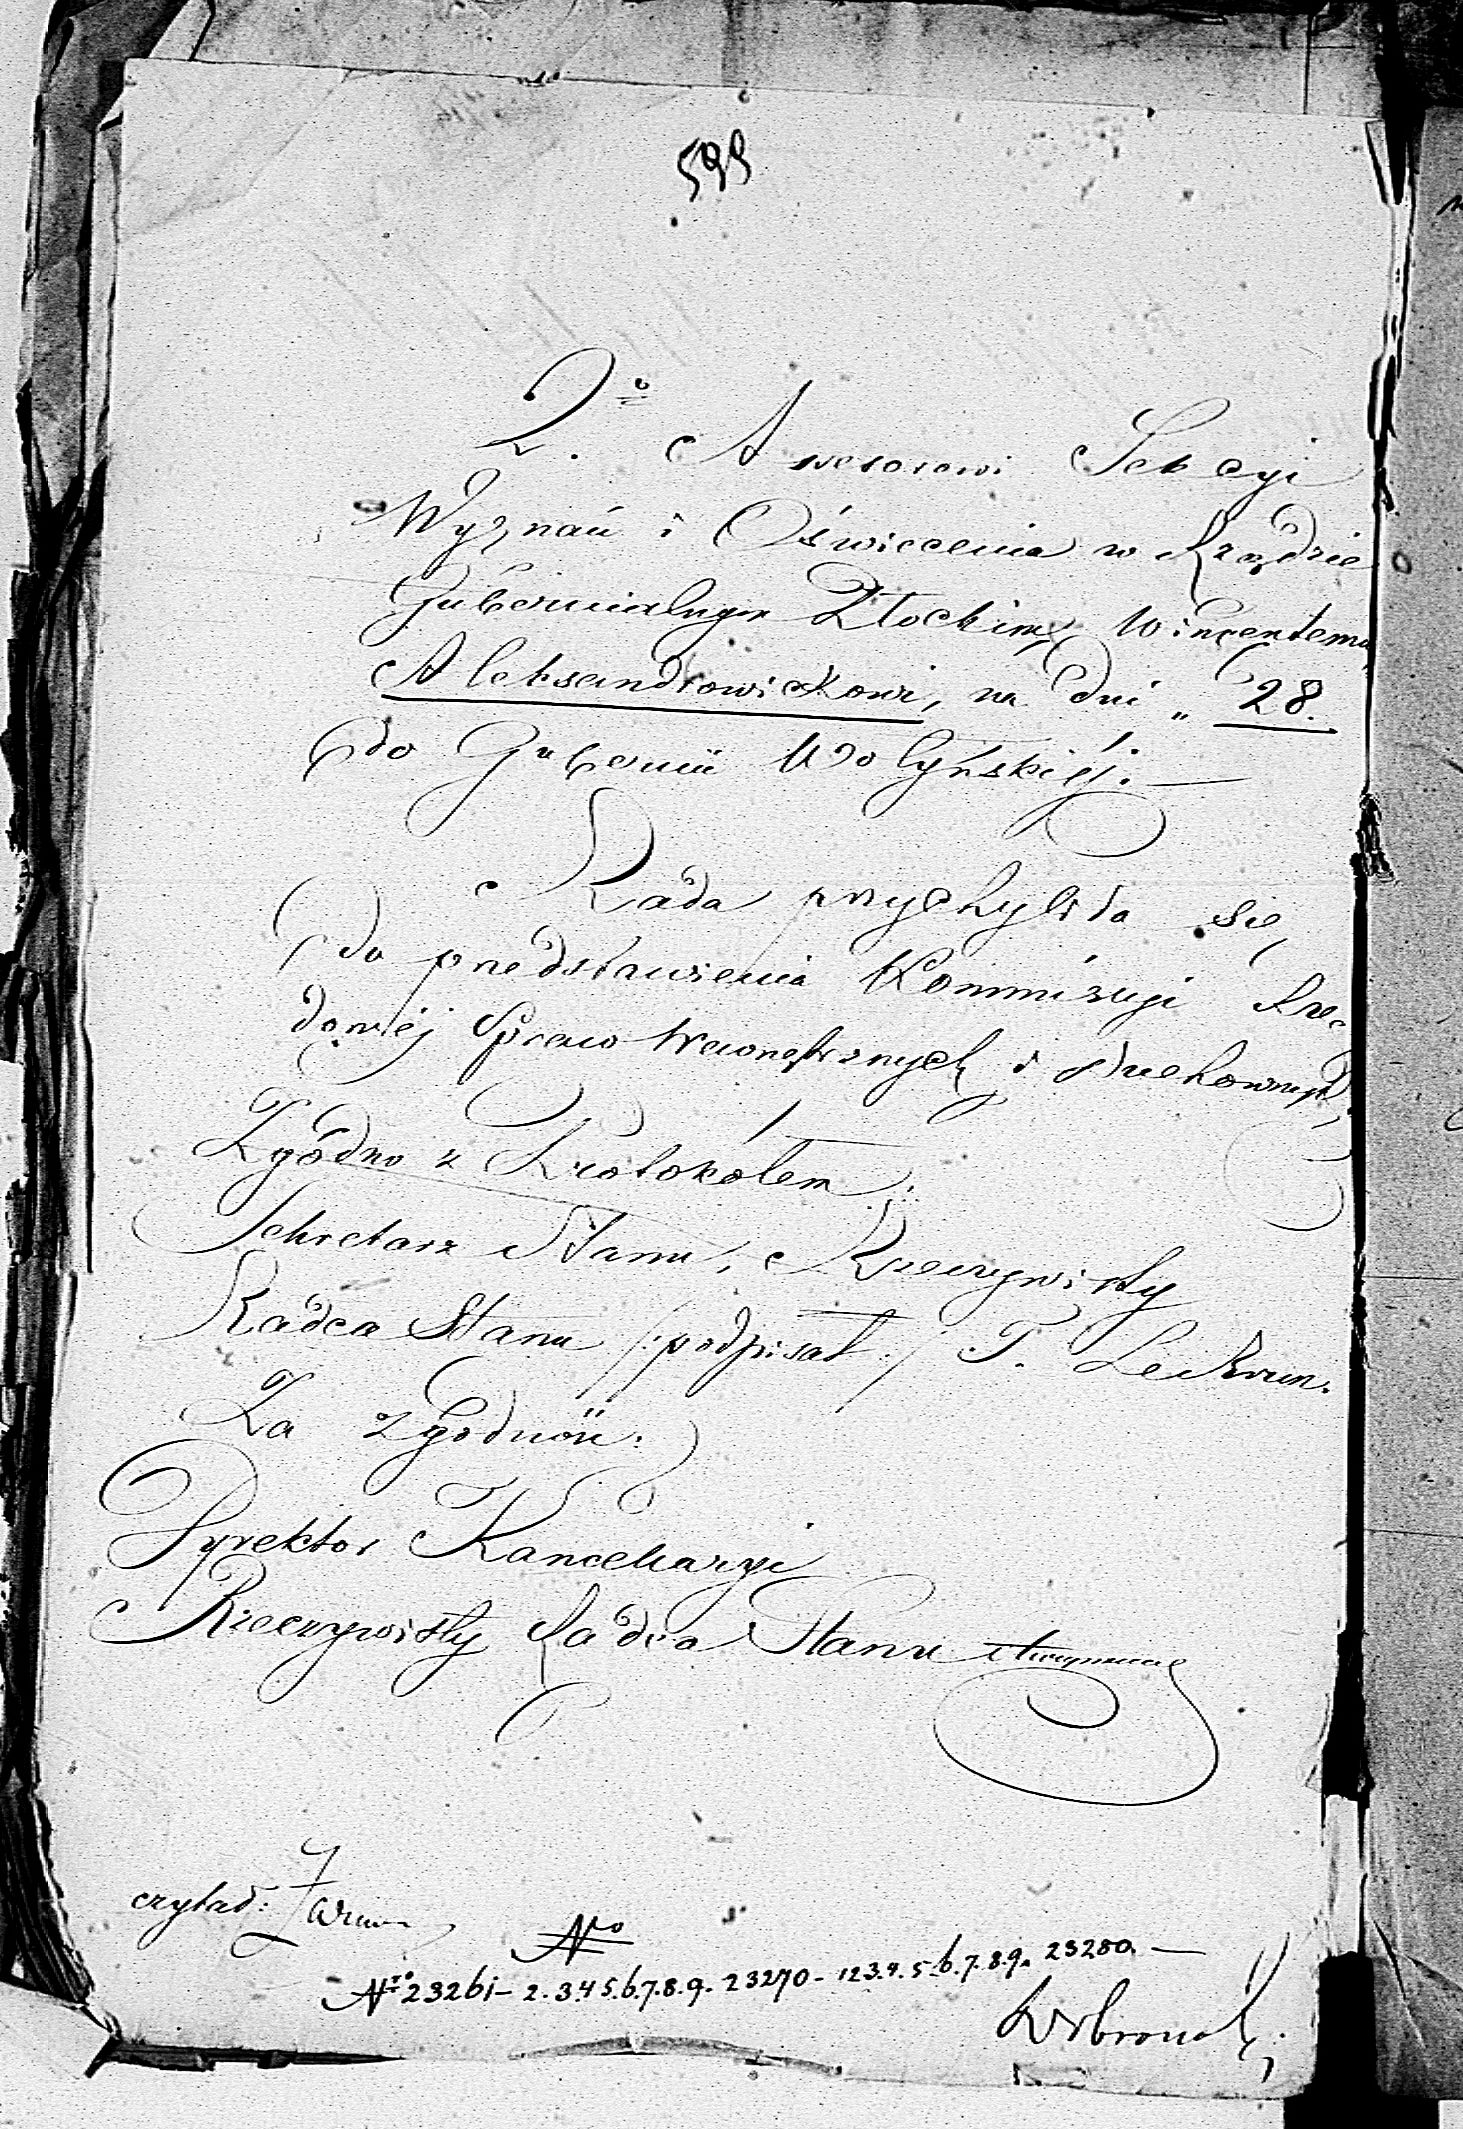 599
2º. Assessorowi Sekcyi
Wyznań i Oświecenia w Rządzie
Gubernialnym Płockim, Wincentemu
Aleksandrowiczowi, na dni „ 28.
do Gubernii Wołyńskiéj. —
Rada przychyliła się
do przedstawienia Kommissyi Rzą-
dowéj Spraw Wewnętrznych i Duchownych
Zgodno z Protokółem:
Sekretarz Stanu, Rzeczywisty
Radca Stanu /:podpisał:/ T. Le Brun.
Za zgodność:
Dyrektor Kancellaryi
Rzeczywisty Radca Stanu
czytał:
Nº
Nro 23261- 2.3.4.5.6.7.8.9. 23270- 12.3.4.5.6.7.8.9. 23280. —